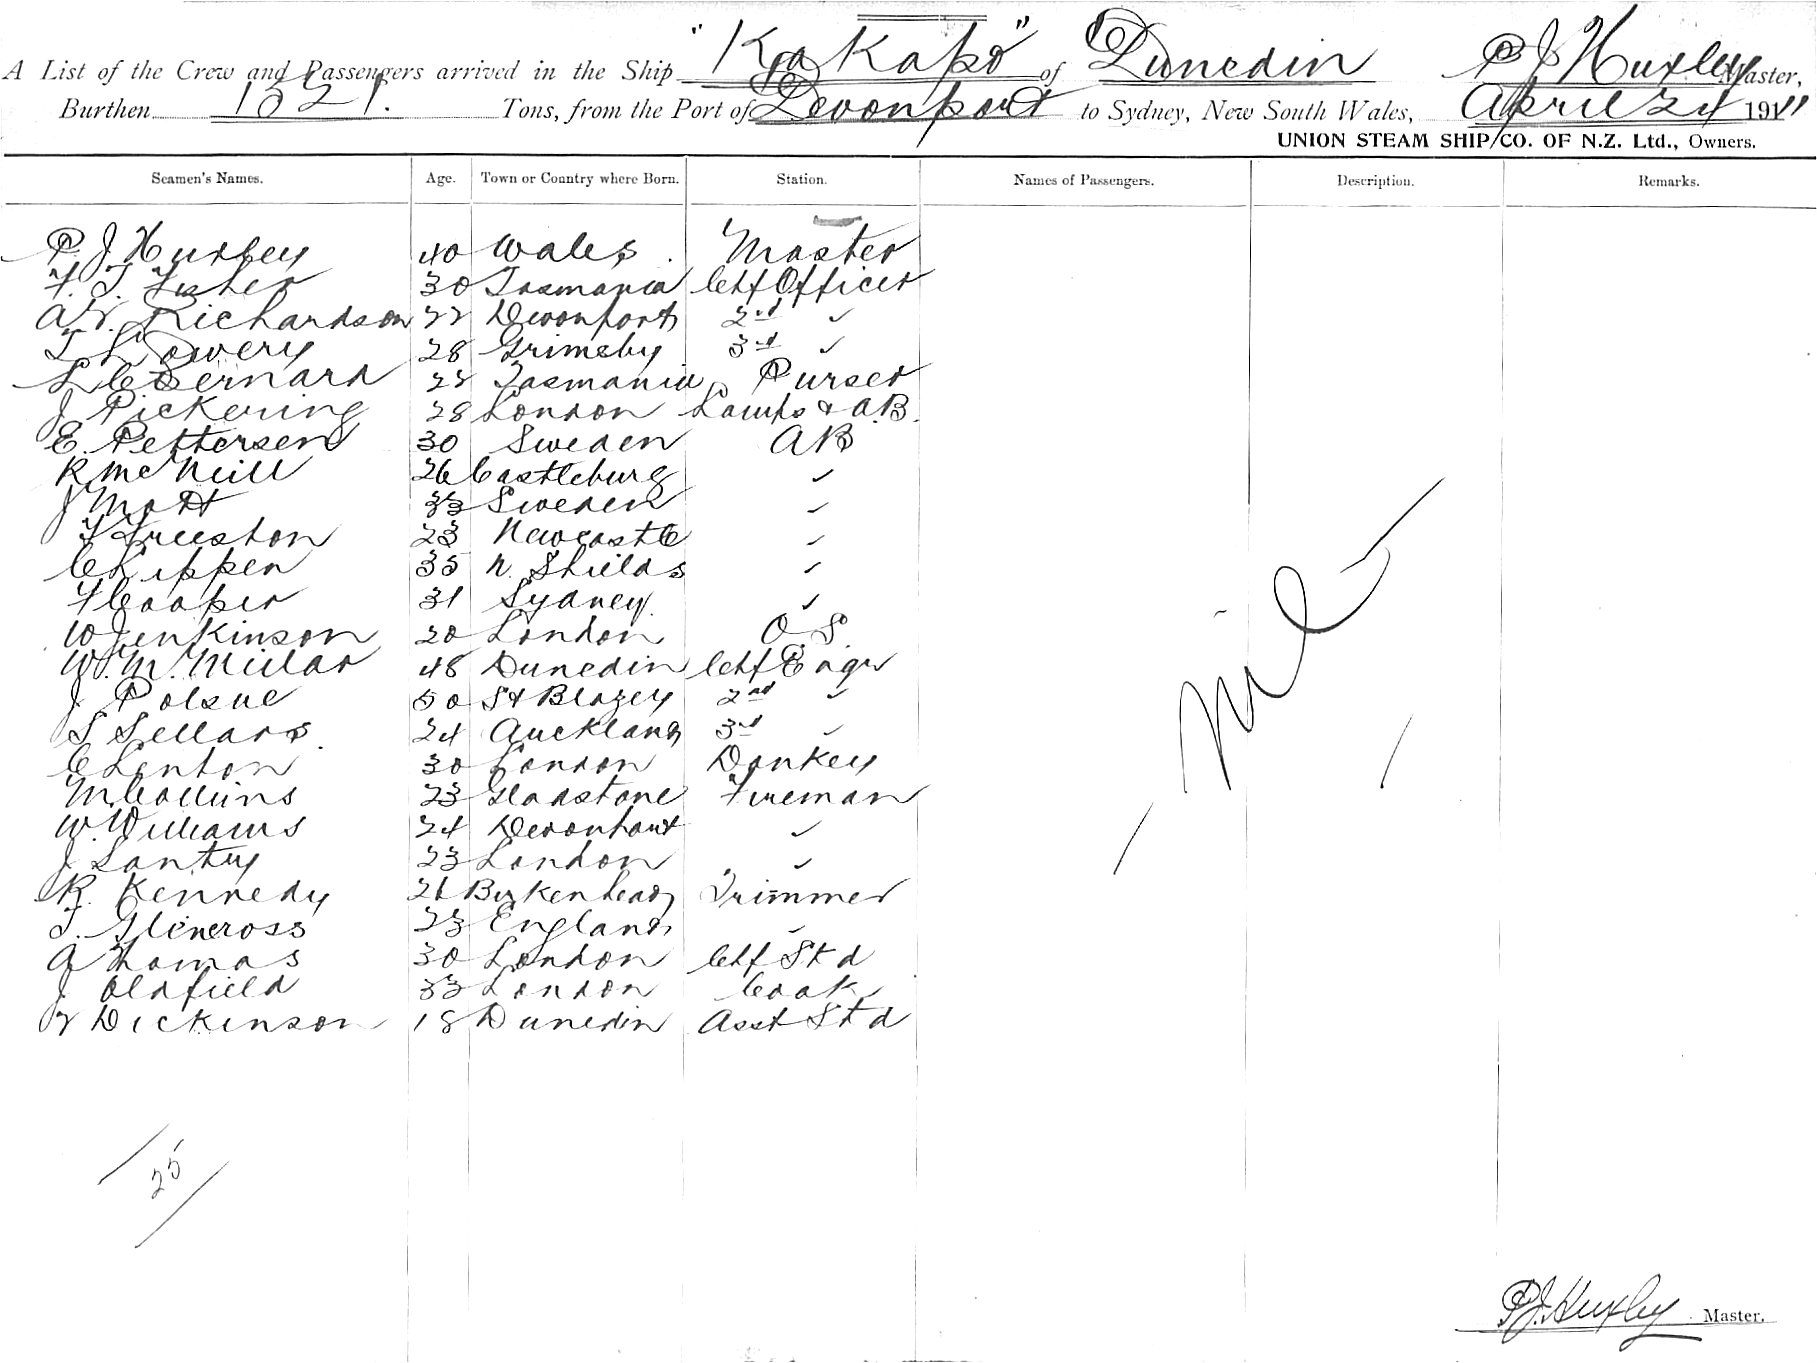 A List of the Crew and Passengers arrived in the Ship "Kakapo" of Dunedin P J Huxley Master,
Burthen 1521. Tons, from the Port of Devonport to Sydney, New South Wales, April 24 1911
UNION STEAM SHIP CO. OF N.Z. Ltd., Owners.
Seamen's Names. Age. Town or Country where Born. Station. Names of Passengers. Description. Remarks.
P. J Huxley 40 Wales. Master
F. T. Fisher 30 Tasmania Chf Officer
Richardson 22 Devonport 2nd "
T Lowery 28 Grimsby 3rd "
L C Bernard 22 Tasmania Purser
J Pickering 28 London Lamps & A.B.
E. Pettersen 30 Sweden AB
R McNeill 26 Castleburg "
J Mott 33 Sweden "
F Freeston 23 Newcastle "
C Kippen 35 N. Shields "
F Cooper 31 Sydney. "
W Jenkinson 20 London O S.
W. M. Millar 48 Dunedin Chf Engr
J Polsue 50 St Blazey 2nd "
S Sellars. 24 Auckland 3rd "
C Lenton 30 London Donkey
M Collins 23 Gladstone Fireman
W. Williams 24 Devonport "
J Santuy 23 London "
R. Kennedy 26 Birkenhead Trimmer
T. Glencross 23 England "
A Thomas 30 London Chf Std
J Oldfield 33 London Cook
Dickinson 18 Dunedin Asst Std
Nil
25
P.J. Huxley Master.